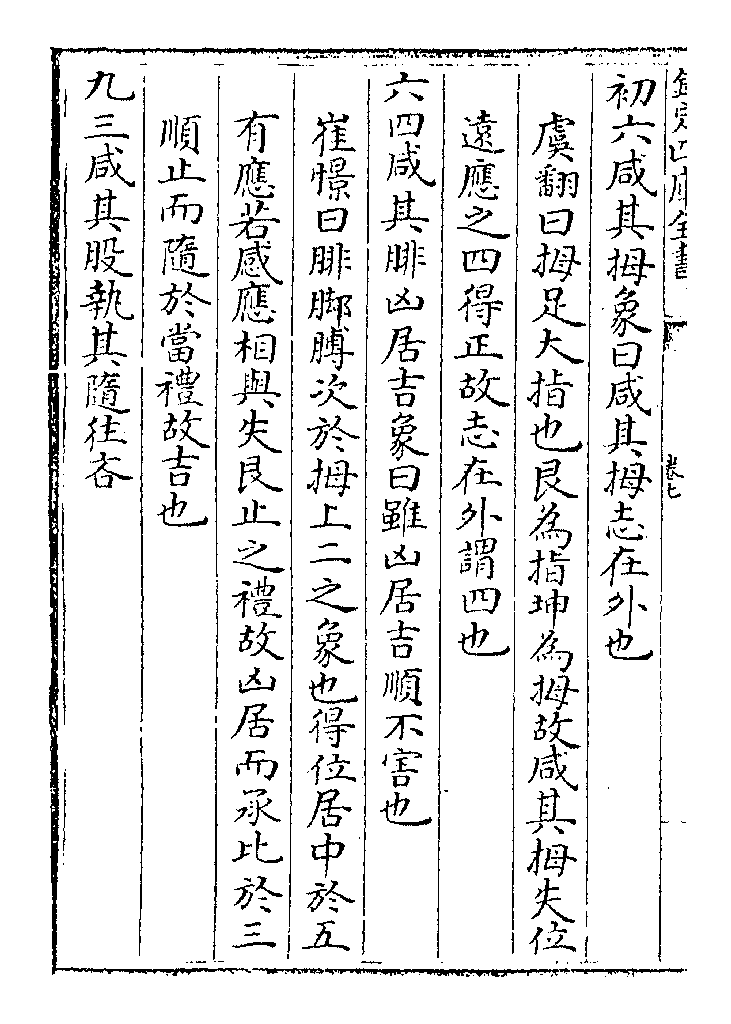 欽定四庫全書
卷七
初六咸其拇象曰咸其拇志在外也
虞翻曰拇足大指也艮為指坤為拇故咸其拇失位
遠應之四得正故志在外謂四也
六四咸其腓凶居吉象曰雖凶居吉順不害也
崔憬曰腓脚膊次於拇上二之象也得位居中於五
有應若感應相與失艮止之禮故凶居而承比於三
順止而隨於當禮故吉也
九三咸其股執其隨往吝